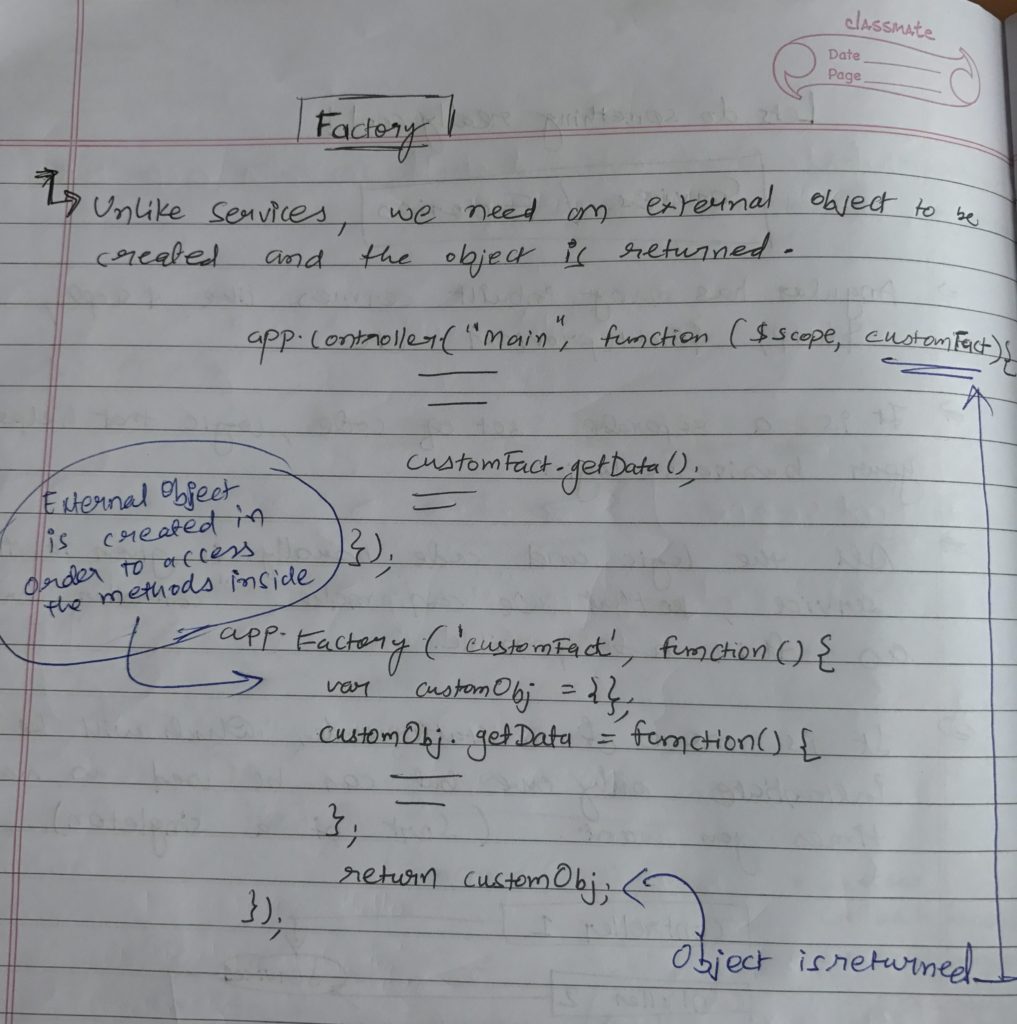 classmate
Date
Page
Factory
Unlike services, we need an external object to be
created and the object is returned.
app.controller("Main", function ($scope, customFact){
customFact.getData();
External Object
is created in
order to access
the methods inside
});
app.Factory ('customFact', function () {
var customObj = {};
customObj.getData = function() {
};
return customObj;
});
Object is returned